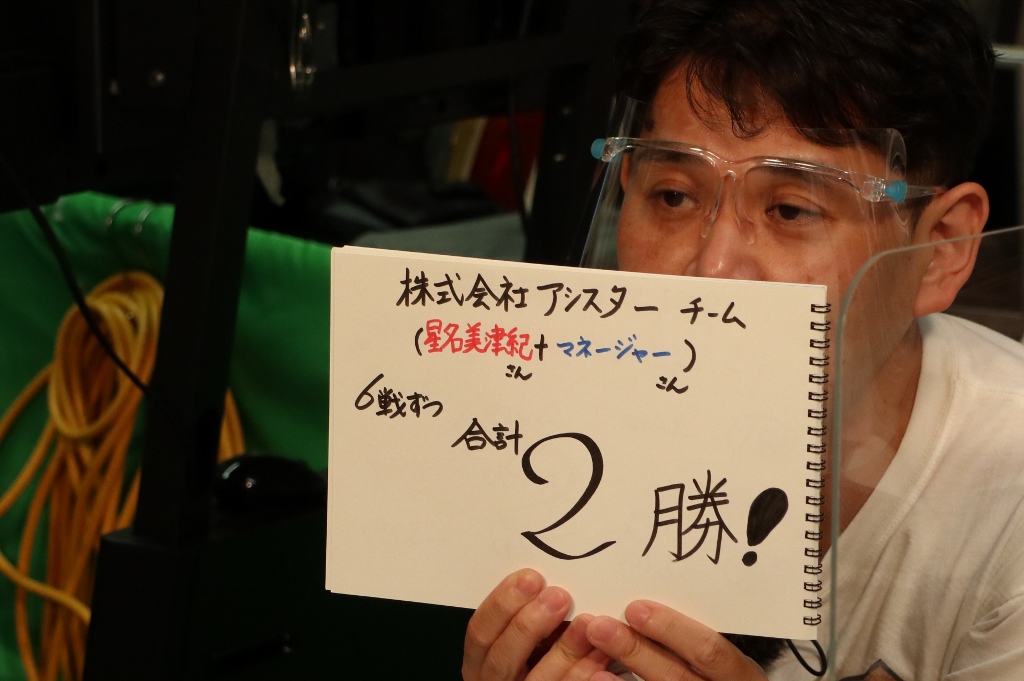 株式会社アシスター チーム
(星名美津紀+マネージャー)
こん こん
6戦ずつ
合計
2勝!